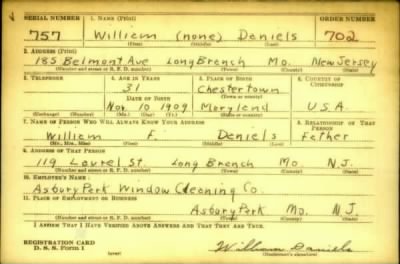 SERIAL NUMBER 1. NAME (Print) ORDER NUMBER
757 William (none) Daniels 702
(First) (Middle) (Last)
2. ADDRESS (Print)
185 Belmont Ave Long Branch Mo. New Jersey
(Number and street or R. F. D. number) (Town) (County) (State)
3. TELEPHONE 4. AGE IN YEARS 5. PLACE OF BIRTH 6. COUNTRY OF CITIZENSHIP
31 Chestertown
DATE OF BIRTH (Town or county)
Nov 10 1909 Maryland U.S.A.
(Exchange) (Number) (Mo.) (Day) (Yr.) (State or country)
7. NAME OF PERSON WHO WILL ALWAYS KNOW YOUR ADDRESS 8. RELATIONSHIP OF THAT PERSON
William F. Daniels Father
(Mr., Mrs., Miss) (First) (Middle) (Last)
9. ADDRESS OF THAT PERSON
119 Laurel St. Long Branch Mo. N.J.
(Number and street or R. F. D. number) (Town) (County) (State)
10. EMPLOYER'S NAME
Asbury Park Window Cleaning Co.
11. PLACE OF EMPLOYMENT OR BUSINESS
Asbury Park Mo. N.J.
(Number and street or R. F. D. number) (Town) (County) (State)
I AFFIRM THAT I HAVE VERIFIED ABOVE ANSWERS AND THAT THEY ARE TRUE.
REGISTRATION CARD
D. S. S. Form 1 (over) William Daniels
(Registrant's signature)